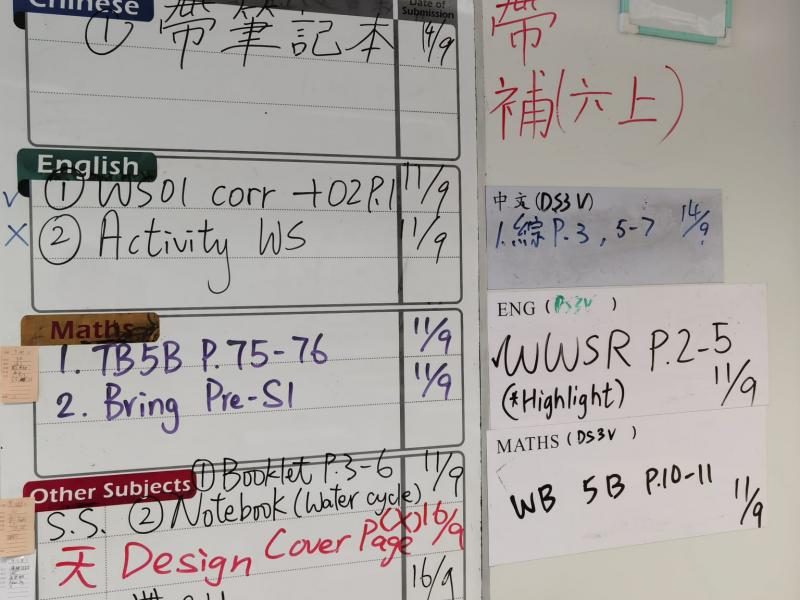 Chinese
Date of Submission
① 帶筆記本 14/9
English
① WS01 corr +02P.1 11/9
② Activity WS 11/9
Maths
1. TB5B P.75-76 11/9
2. Bring Pre-S1 11/9
Other Subjects
① Booklet P.3-6 11/9
S.S. ② Notebook (Water cycle)
天 Design Cover Page (X) 16/9
16/9
帶
補(六上)
中文(DS3V)
1. 綜 P.3, 5-7 14/9
ENG (DS3V)
WWSR P.2-5
(*Highlight) 11/9
MATHS (DS3V)
WB 5B P.10-11 11/9